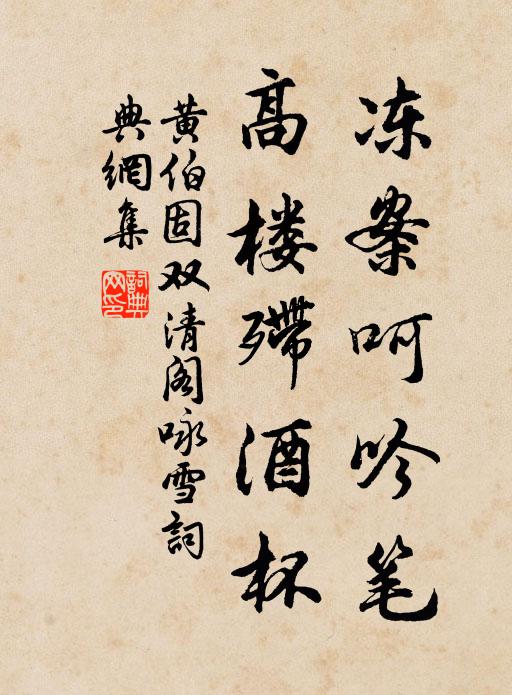 冻案呵吟笔
高楼殢酒杯
黄伯固双清阁咏雪詞
典網集
詞典网印